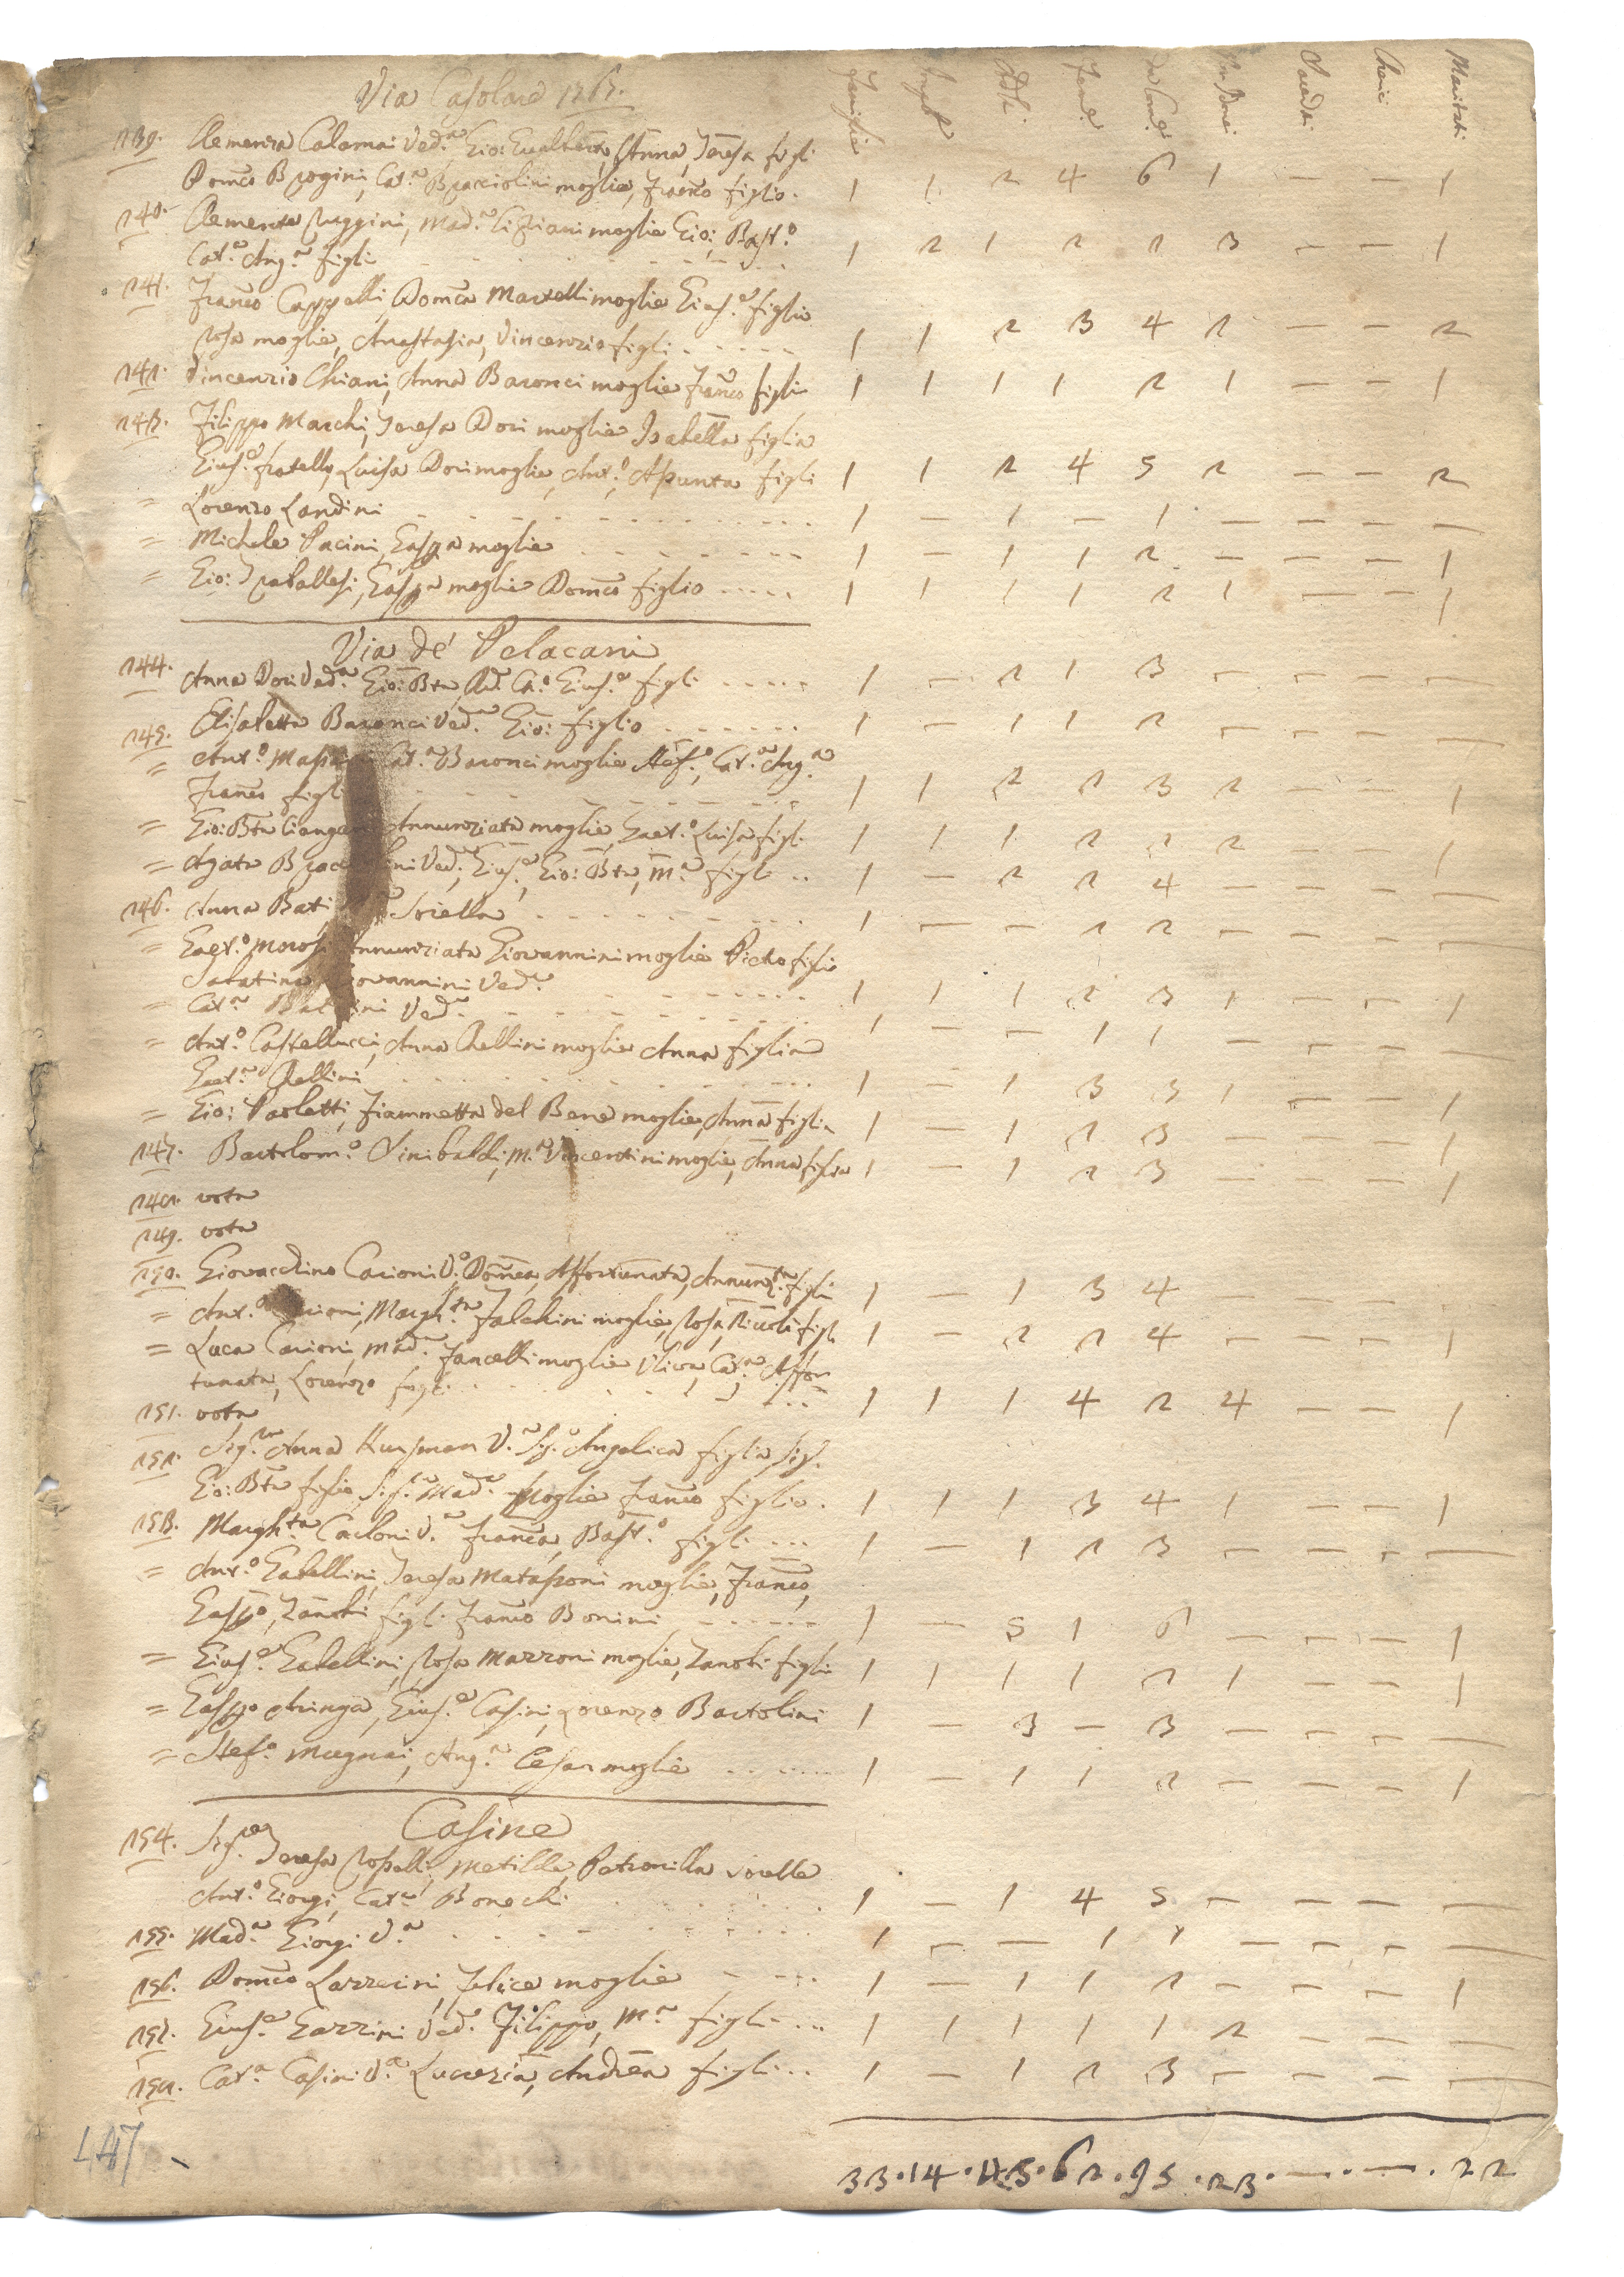 Via Casolare 1767.
Famiglie Impub. Adti. Fem.e da Com.e In Bene Sacerdti. Cherici Maritati
139. Clemenza Calamai Ved.a, Gio: Gualberto, Anna, Teresa figli
Domco Brogini, Cat.a Bracciolini moglie, Franco figlio. 1 1 2 4 6 1 — — 1
140. Clemente Ruggini, Mad.a Cipriani moglie Gio: Bast.o
Cat.a Ang.a figli 1 2 1 2 2 3 — — 1
141. Franco Cappelli, Domca Martelli moglie Gius.e figlio
Rosa moglie, Anastasia, Vincenzio figli 1 1 2 3 4 2 — — 2
142. Vincenzio Chiani, Anna Baronci moglie Franco figlio 1 1 1 1 2 1 — — 1
143. Filippo Marchi, Teresa Dori moglie Isabella figlia
Gius.e fratello, Luisa Dori moglie, Ant.o, Asunta figli 1 1 2 4 5 2 — — 2
= Lorenzo Landini 1 — 1 — 1 — — — —
= Michele Pacini, Gaspa moglie 1 — 1 1 2 — — — 1
= Gio: Traballesi, Gaspa moglie Domco figlio 1 1 1 1 2 1 — — 1
Via de' Pelacani
144. Anna Dori Ved.a Gio: Bta, Ad. Ca.o Gius.e figli 1 — 2 1 3 — — — —
145. Elisabetta Baronci Ved.a Gio: figlio 1 — 1 1 2 — — — —
= Ant.o Cat.a Baronci moglie Stef.o, Cat.a Ang.a
Franco figli 1 1 2 2 3 2 — — 1
= Gio: Bta Annunziata moglie, Gaet.o Luisa figli 1 1 1 2 2 2 — — 1
= Agata Ved.a, Gius.e, Gio: Bta, M.a figli 1 — 2 2 4 — — — —
146. Anna Bati Sorella 1 — — 2 2 — — — —
= Gaet.o Morosi Annunziata Giovannini moglie Pietro figlio
Sabatina Giovannini Ved.a 1 1 1 2 3 1 — — 1
= Cat.a Ved.a 1 — — 1 1 — — — —
= Ant.o Castellucci, Anna Chellini moglie Anna figlia
Gaet.a Chellini 1 — 1 3 3 1 — — 1
= Gio: Paoletti, Fiammetta del Bene moglie, Anna figlia 1 — 1 2 3 — — — 1
147. Bartolom.o Sinibaldi, M.a Vincentini moglie, Anna figlia 1 — 1 2 3 — — — 1
148. vota
149. vota
150. Giovacchino Carioni V.o, Domca, Affortunata, Annunz.ta figli 1 — 1 3 4 — — —
= Ant.o Carioni, Margh.ta Falchini moglie, Rosa, Niccolò figli 1 — 2 2 4 — — — 1
= Luca Carioni, Mad.a Fancelli moglie Uliva, Cat.a Affor
tunata, Lorenzo figli 1 1 1 4 2 4 — — 1
151. vota
152. Sig.ra Anna Kursman V.a Sig.a Angelica figlia, Sig.
Gio: Bta figlio Sig.a Mad.a moglie Franco figlio. 1 1 1 3 4 1 — — 1
153. Margh.ta Carloni V.a Franca, Bast.o figli 1 — 1 2 3 — — — —
= Ant.o Gabellini, Teresa Matasoni moglie, Franco,
Gaspo, Zanobi figli Franco Bonini 1 — 5 1 6 — — — 1
= Gius.e Gabellini, Rosa Mazzoni moglie, Zanobi figlio 1 1 1 1 2 1 — — 1
= Gaspo Aringa, Gius.e Casini, Lorenzo Bartolini 1 — 3 — 3 — — — —
= Stef.o Mugnai, Ang.a Cesari moglie 1 — 1 1 2 — — — 1
Casine
154. Sig.re Teresa Rospelli, Metilde, Petronilla sorelle
Ant.o Giorgi, Cat.a Bonechi 1 — 1 4 5 — — — —
155. Mad.a Giorgi V.a 1 — — 1 1 — — — —
156. Domco Lazzerini, Felice moglie 1 — 1 1 2 — — — 1
157. Gius.e Gazzini Ved.o Filippo, M.a figli 1 1 1 1 1 2 — — —
158. Cat.a Casini V.a Lucrezia, Andrea figli 1 — 1 2 3 — — — —
33 . 14 . 43 . 62 . 95 . 23 . — . — . 22
147